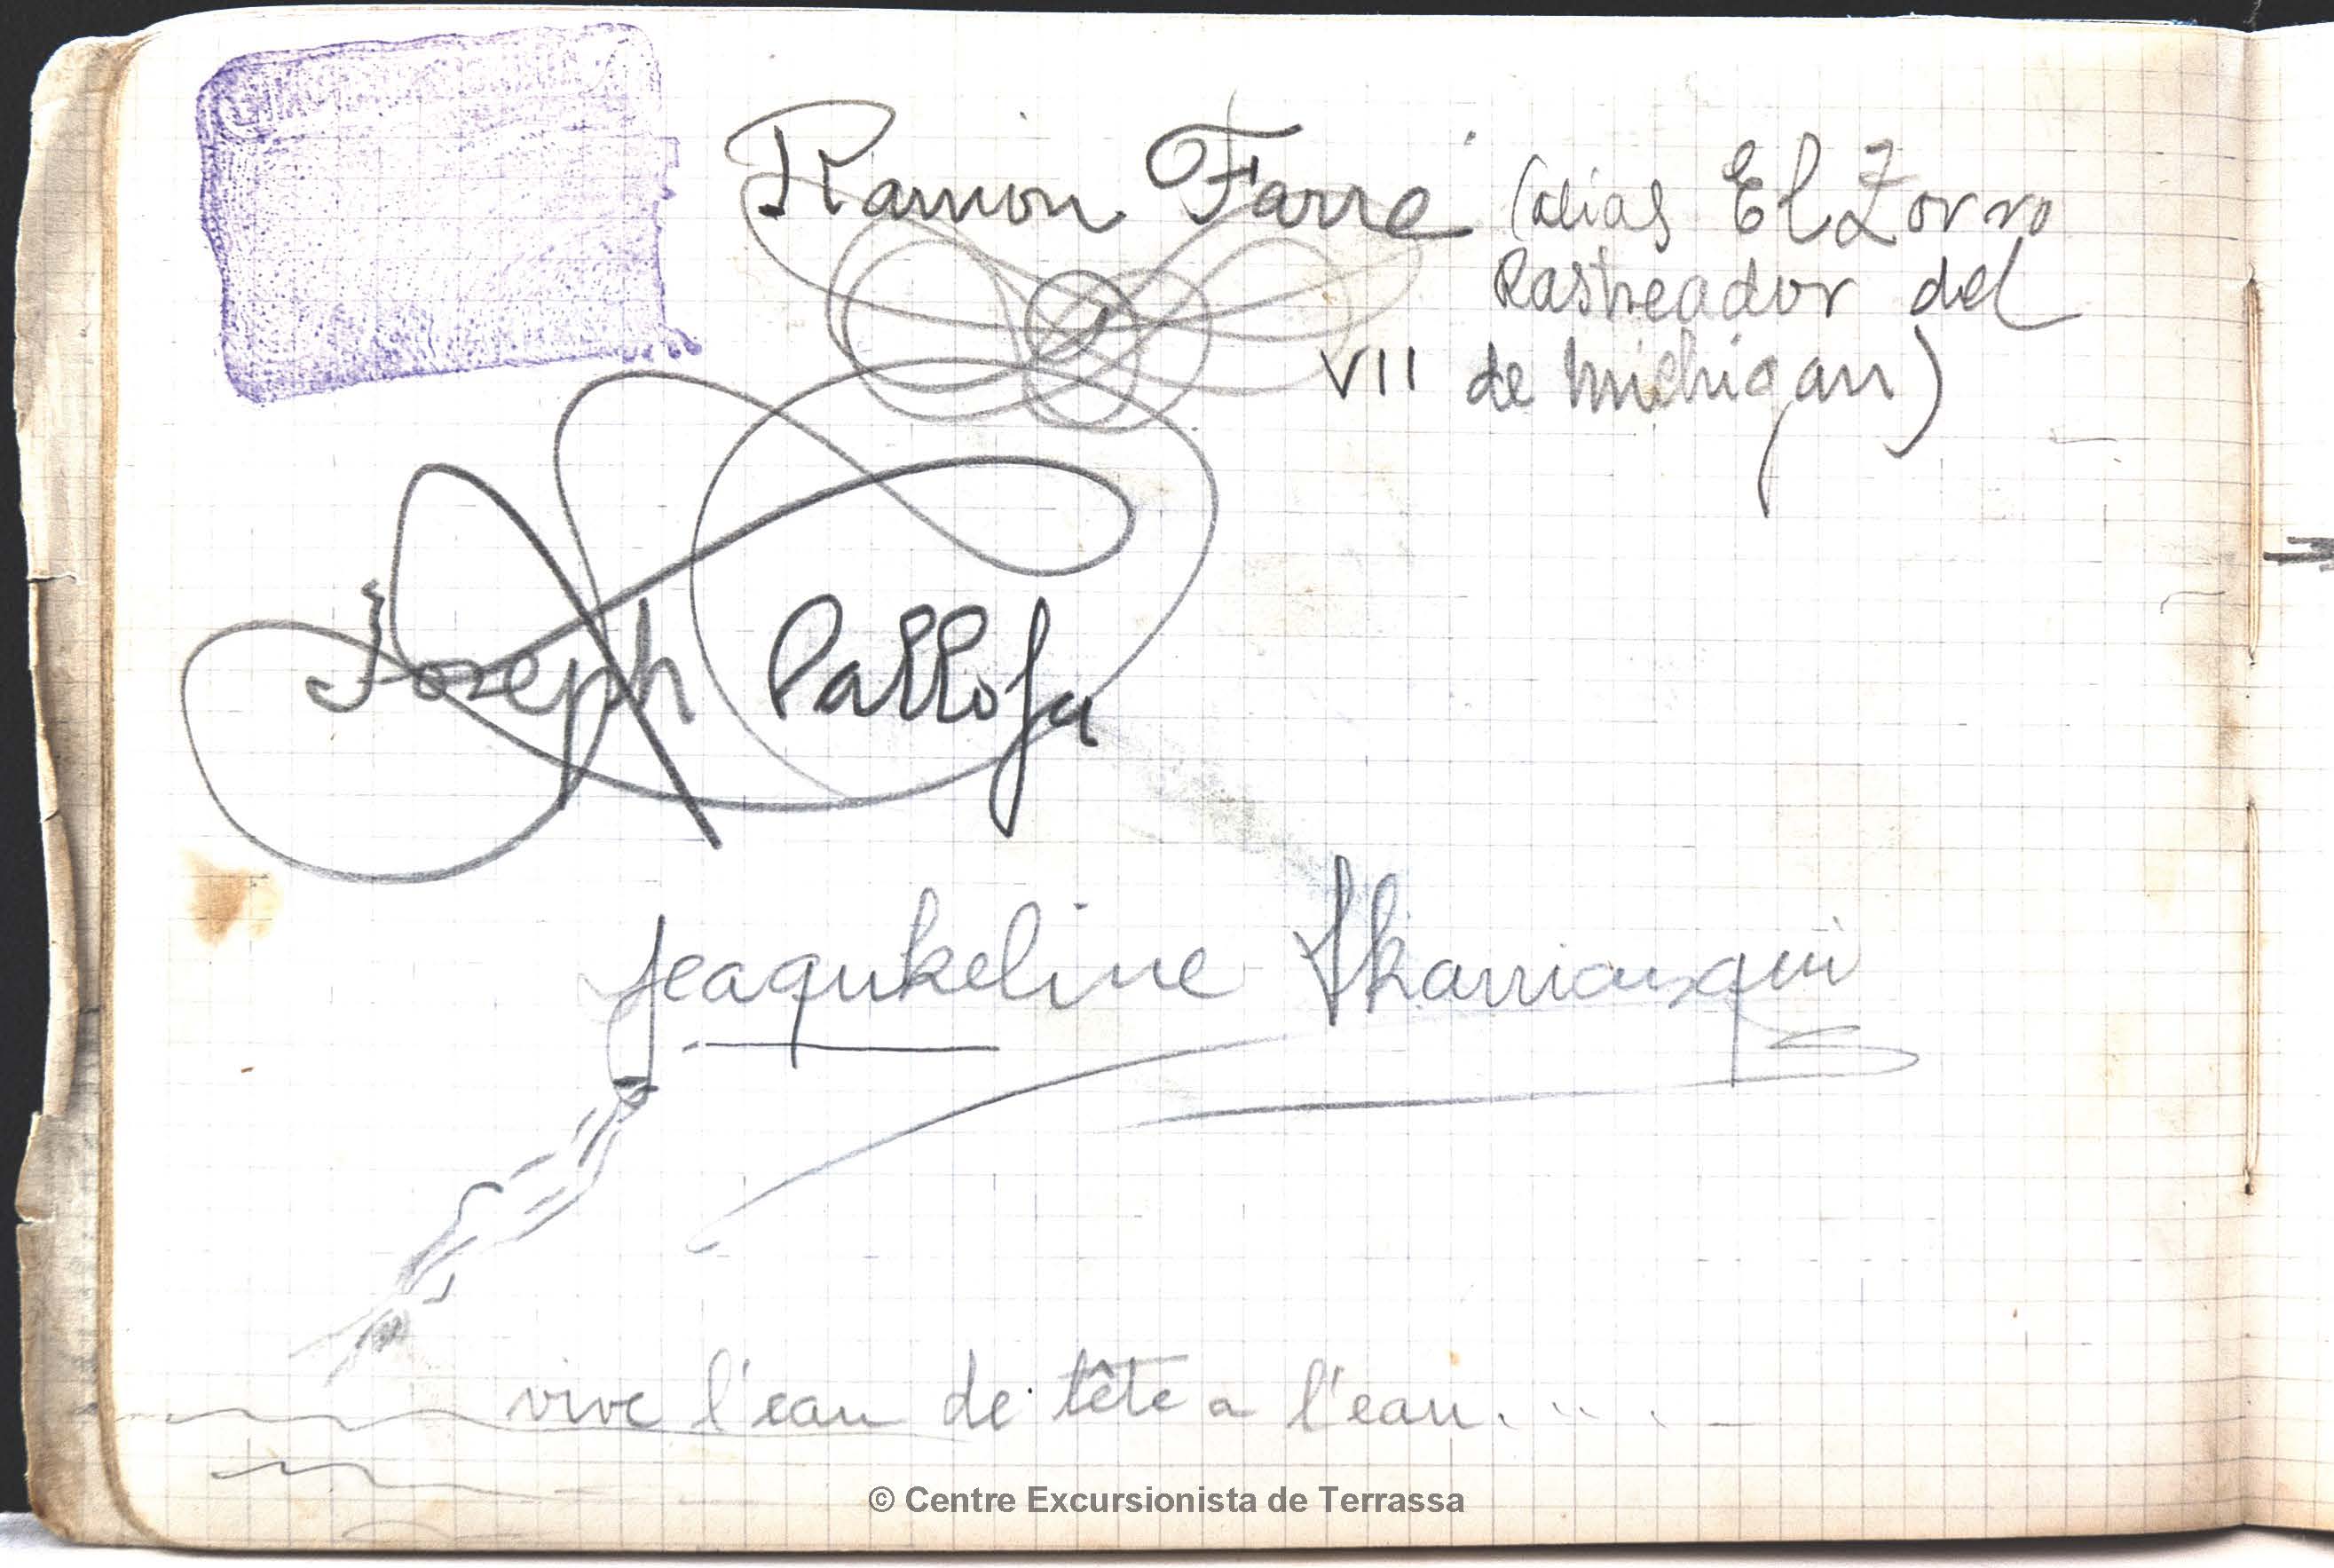 Ramon Farre (alias El Zorro
Rastreador del
VII de Michigan)
Joseph Pallofa
Jeaqukeline
vive l'eau de tête a l'eau.....
© Centre Excursionista de Terrassa